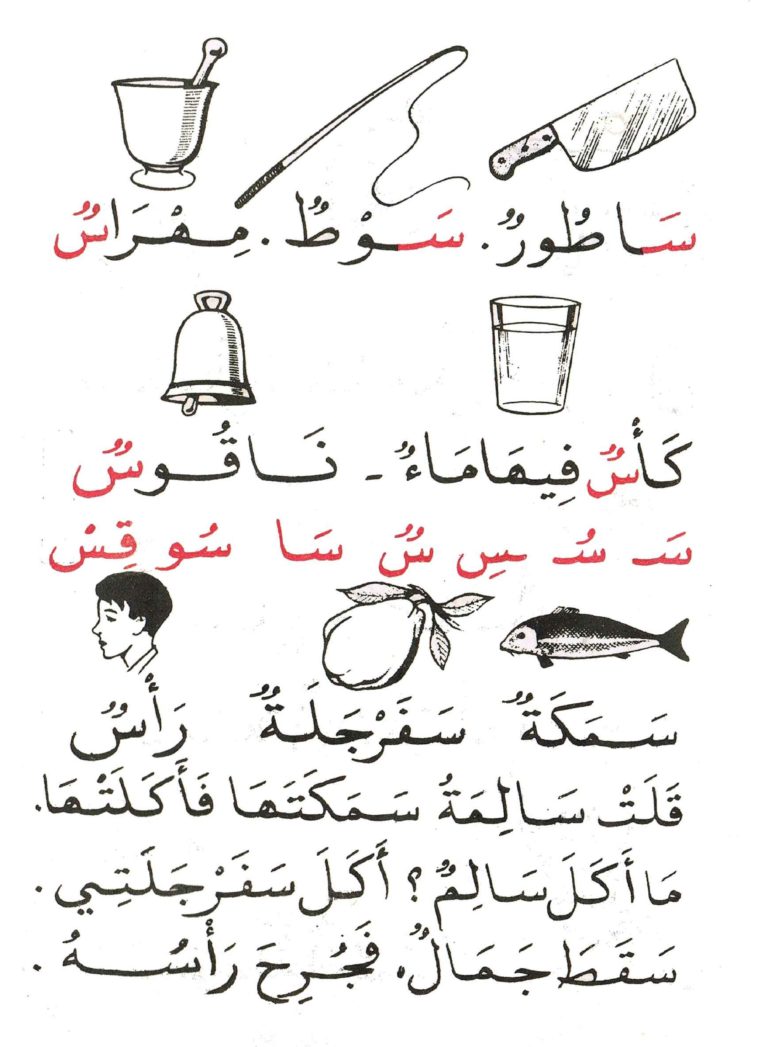 سَاطُورٌ. سَوْطٌ. مِهْرَاسٌ
كَأْسٌ فِيهَا مَاءٌ - نَاقُوسٌ
سَـ سُـ سِ سٌ سَا سُو قِسْ
سَمَكَةٌ سَفَرْجَلَةٌ رَأْسٌ
قَلَتْ سَالِمَةُ سَمَكَتَهَا فَأَكَلَتْهَا.
مَا أَكَلَ سَالِمٌ؟ أَكَلَ سَفَرْجَلَتِي.
سَقَطَ جَمَالٌ، فَجُرِحَ رَأْسُهُ.